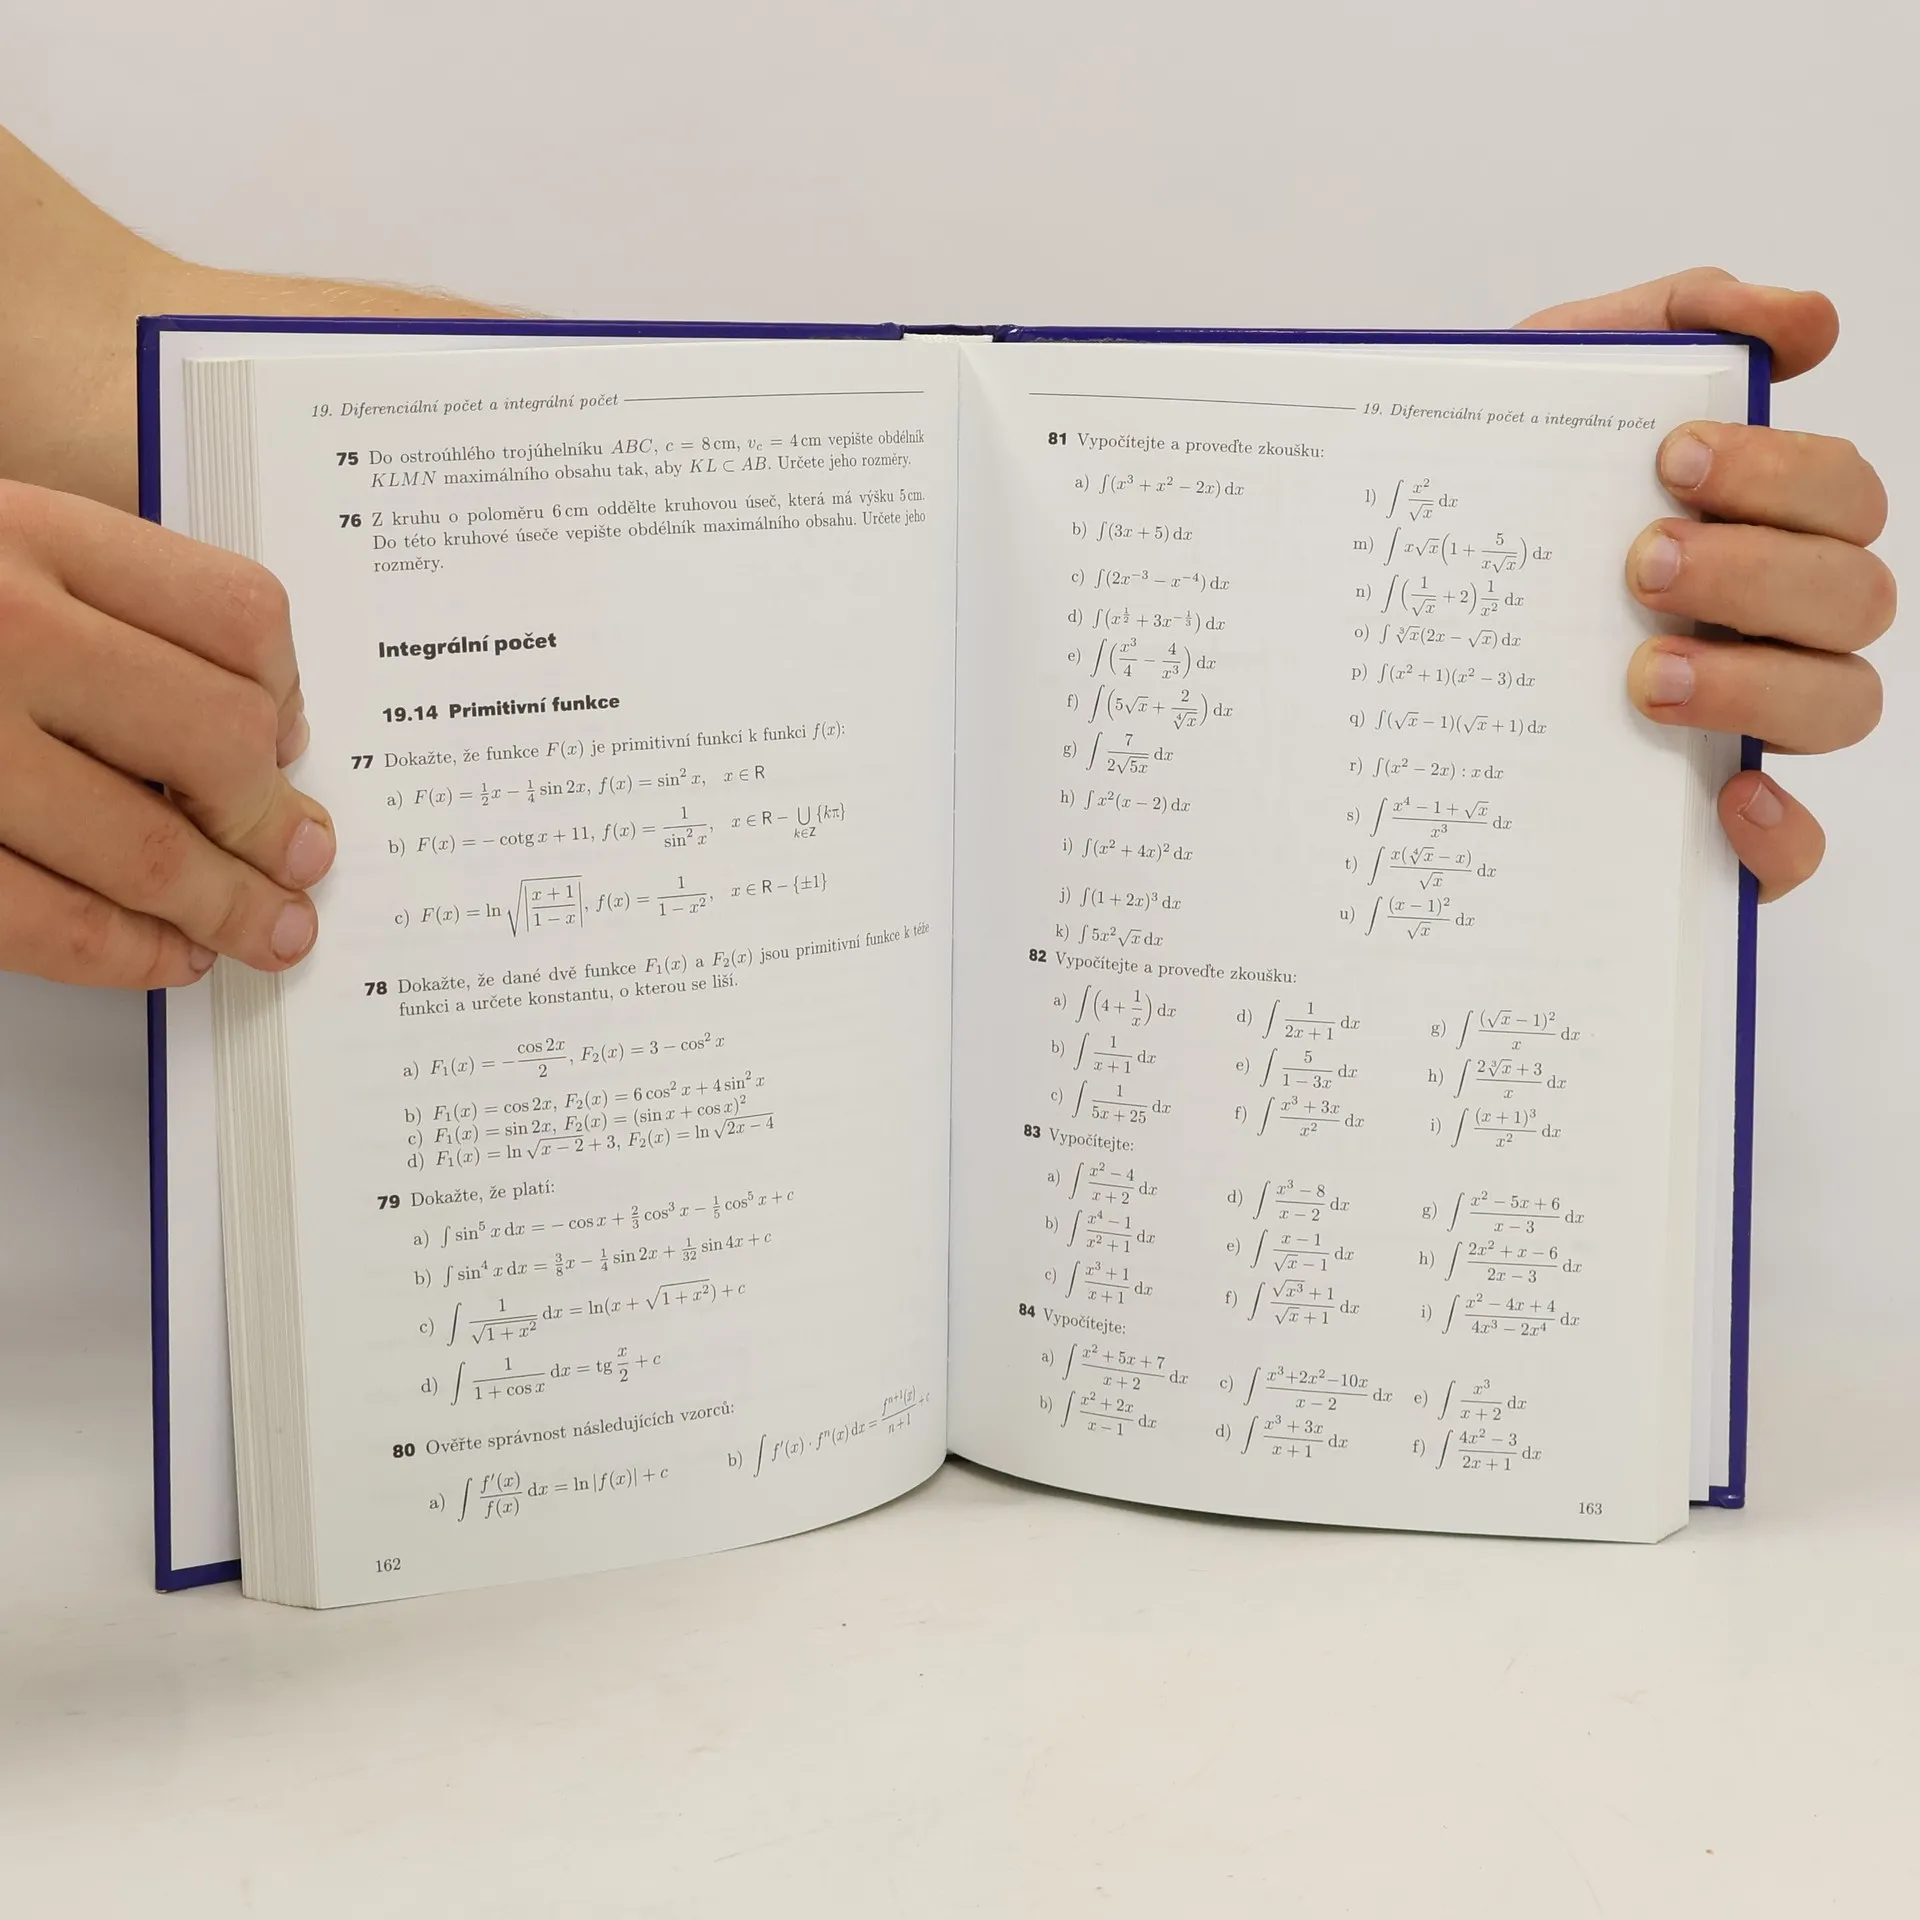 19. Diferenciální počet a integrální počet
75 Do ostroúhlého trojúhelníku ABC, c = 8 cm, v_c = 4 cm vepište obdélník
KLMN maximálního obsahu tak, aby KL ⊂ AB. Určete jeho rozměry.
76 Z kruhu o poloměru 6 cm oddělte kruhovou úseč, která má výšku 5 cm.
Do této kruhové úseče vepište obdélník maximálního obsahu. Určete jeho
rozměry.
Integrální počet
19.14 Primitivní funkce
77 Dokažte, že funkce F(x) je primitivní funkcí k funkci f(x):
a) F(x) = 1/2 x − 1/4 sin 2x, f(x) = sin² x, x ∈ R
b) F(x) = − cotg x + 11, f(x) = 1/(sin² x), x ∈ R − ⋃_{k∈Z} {kπ}
c) F(x) = ln √|(x + 1)/(1 − x)|, f(x) = 1/(1 − x²), x ∈ R − {±1}
78 Dokažte, že dané dvě funkce F₁(x) a F₂(x) jsou primitivní funkce k téže
funkci a určete konstantu, o kterou se liší.
a) F₁(x) = −(cos 2x)/2, F₂(x) = 3 − cos² x
b) F₁(x) = cos 2x, F₂(x) = 6 cos² x + 4 sin² x
c) F₁(x) = sin 2x, F₂(x) = (sin x + cos x)²
d) F₁(x) = ln √(x − 2) + 3, F₂(x) = ln √(2x − 4)
79 Dokažte, že platí:
a) ∫ sin⁵ x dx = − cos x + 2/3 cos³ x − 1/5 cos⁵ x + c
b) ∫ sin⁴ x dx = 3/8 x − 1/4 sin 2x + 1/32 sin 4x + c
c) ∫ 1/√(1 + x²) dx = ln(x + √(1 + x²)) + c
d) ∫ 1/(1 + cos x) dx = tg x/2 + c
80 Ověřte správnost následujících vzorců:
a) ∫ f′(x)/f(x) dx = ln |f(x)| + c b) ∫ f′(x) · fⁿ(x) dx = fⁿ⁺¹(x)/(n + 1) + c
162
19. Diferenciální počet a integrální počet
81 Vypočítejte a proveďte zkoušku:
a) ∫(x³ + x² − 2x) dx
b) ∫(3x + 5) dx
c) ∫(2x⁻³ − x⁻⁴) dx
d) ∫(x^(1/2) + 3x^(−1/3)) dx
e) ∫(x³/4 − 4/x³) dx
f) ∫(5√x + 2/∜x) dx
g) ∫ 7/(2√(5x)) dx
h) ∫ x²(x − 2) dx
i) ∫(x² + 4x)² dx
j) ∫(1 + 2x)³ dx
k) ∫ 5x²√x dx
l) ∫ x²/√x dx
m) ∫ x√x(1 + 5/(x√x)) dx
n) ∫(1/√x + 2) 1/x² dx
o) ∫ ∛x(2x − √x) dx
p) ∫(x² + 1)(x² − 3) dx
q) ∫(√x − 1)(√x + 1) dx
r) ∫(x² − 2x) : x dx
s) ∫ (x⁴ − 1 + √x)/x³ dx
t) ∫ x(∜x − x)/√x dx
u) ∫ (x − 1)²/√x dx
82 Vypočítejte a proveďte zkoušku:
a) ∫(4 + 1/x) dx d) ∫ 1/(2x + 1) dx g) ∫ (√x − 1)²/x dx
b) ∫ 1/(x + 1) dx e) ∫ 5/(1 − 3x) dx h) ∫ (2∛x + 3)/x dx
c) ∫ 1/(5x + 25) dx f) ∫ (x³ + 3x)/x² dx i) ∫ (x + 1)³/x² dx
83 Vypočítejte:
a) ∫ (x² − 4)/(x + 2) dx d) ∫ (x³ − 8)/(x − 2) dx g) ∫ (x² − 5x + 6)/(x − 3) dx
b) ∫ (x⁴ − 1)/(x² + 1) dx e) ∫ (x − 1)/(√x − 1) dx h) ∫ (2x² + x − 6)/(2x − 3) dx
c) ∫ (x³ + 1)/(x + 1) dx f) ∫ (√x³ + 1)/(√x + 1) dx i) ∫ (x² − 4x + 4)/(4x³ − 2x⁴) dx
84 Vypočítejte:
a) ∫ (x² + 5x + 7)/(x + 2) dx c) ∫ (x³+2x²−10x)/(x − 2) dx e) ∫ x³/(x + 2) dx
b) ∫ (x² + 2x)/(x − 1) dx d) ∫ (x³ + 3x)/(x + 1) dx f) ∫ (4x² − 3)/(2x + 1) dx
163